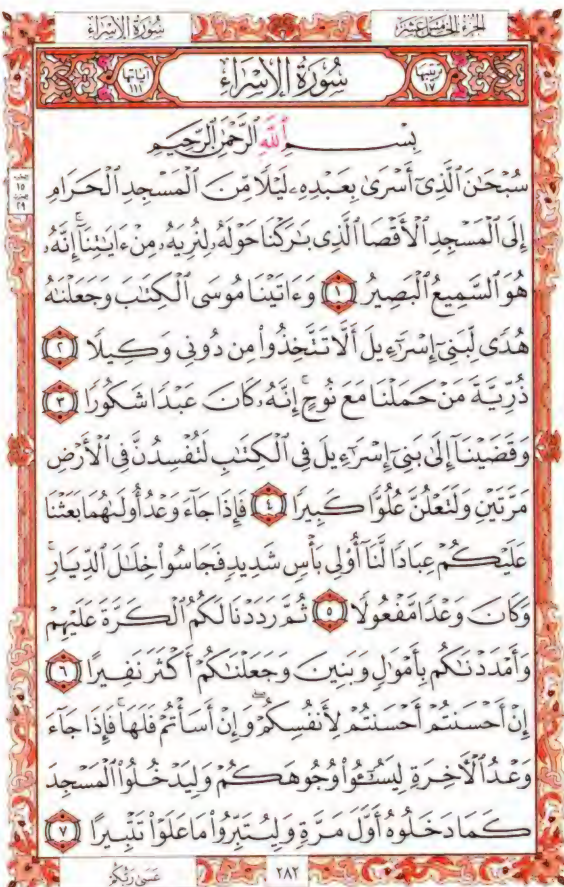 سُورَةُ الإِسْرَاءِ
الجُزْءُ الخَامِسَ عَشَرَ
آيَاتُهَا ١١١
سُورَةُ الإِسْرَاءِ
تَرْتِيبُهَا ١٧
بِسْمِ ٱللَّهِ ٱلرَّحْمَٰنِ ٱلرَّحِيمِ
سُبْحَٰنَ ٱلَّذِىٓ أَسْرَىٰ بِعَبْدِهِۦ لَيْلًا مِّنَ ٱلْمَسْجِدِ ٱلْحَرَامِ
إِلَى ٱلْمَسْجِدِ ٱلْأَقْصَا ٱلَّذِى بَٰرَكْنَا حَوْلَهُۥ لِنُرِيَهُۥ مِنْ ءَايَٰتِنَآ ۚ إِنَّهُۥ
هُوَ ٱلسَّمِيعُ ٱلْبَصِيرُ ١ وَءَاتَيْنَا مُوسَى ٱلْكِتَٰبَ وَجَعَلْنَٰهُ
هُدًى لِّبَنِىٓ إِسْرَٰٓءِيلَ أَلَّا تَتَّخِذُوا۟ مِن دُونِى وَكِيلًا ٢
ذُرِّيَّةَ مَنْ حَمَلْنَا مَعَ نُوحٍ ۚ إِنَّهُۥ كَانَ عَبْدًا شَكُورًا ٣
وَقَضَيْنَآ إِلَىٰ بَنِىٓ إِسْرَٰٓءِيلَ فِى ٱلْكِتَٰبِ لَتُفْسِدُنَّ فِى ٱلْأَرْضِ
مَرَّتَيْنِ وَلَتَعْلُنَّ عُلُوًّا كَبِيرًا ٤ فَإِذَا جَآءَ وَعْدُ أُولَىٰهُمَا بَعَثْنَا
عَلَيْكُمْ عِبَادًا لَّنَآ أُو۟لِى بَأْسٍ شَدِيدٍ فَجَاسُوا۟ خِلَٰلَ ٱلدِّيَارِ ۚ
وَكَانَ وَعْدًا مَّفْعُولًا ٥ ثُمَّ رَدَدْنَا لَكُمُ ٱلْكَرَّةَ عَلَيْهِمْ
وَأَمْدَدْنَٰكُم بِأَمْوَٰلٍ وَبَنِينَ وَجَعَلْنَٰكُمْ أَكْثَرَ نَفِيرًا ٦
إِنْ أَحْسَنتُمْ أَحْسَنتُمْ لِأَنفُسِكُمْ ۖ وَإِنْ أَسَأْتُمْ فَلَهَا ۚ فَإِذَا جَآءَ
وَعْدُ ٱلْأَخِرَةِ لِيَسُۥٓـُٔوا۟ وُجُوهَكُمْ وَلِيَدْخُلُوا۟ ٱلْمَسْجِدَ
كَمَا دَخَلُوهُ أَوَّلَ مَرَّةٍ وَلِيُتَبِّرُوا۟ مَا عَلَوْا۟ تَتْبِيرًا ٧
٢٨٢
عَسَىٰ رَبُّكُمْ